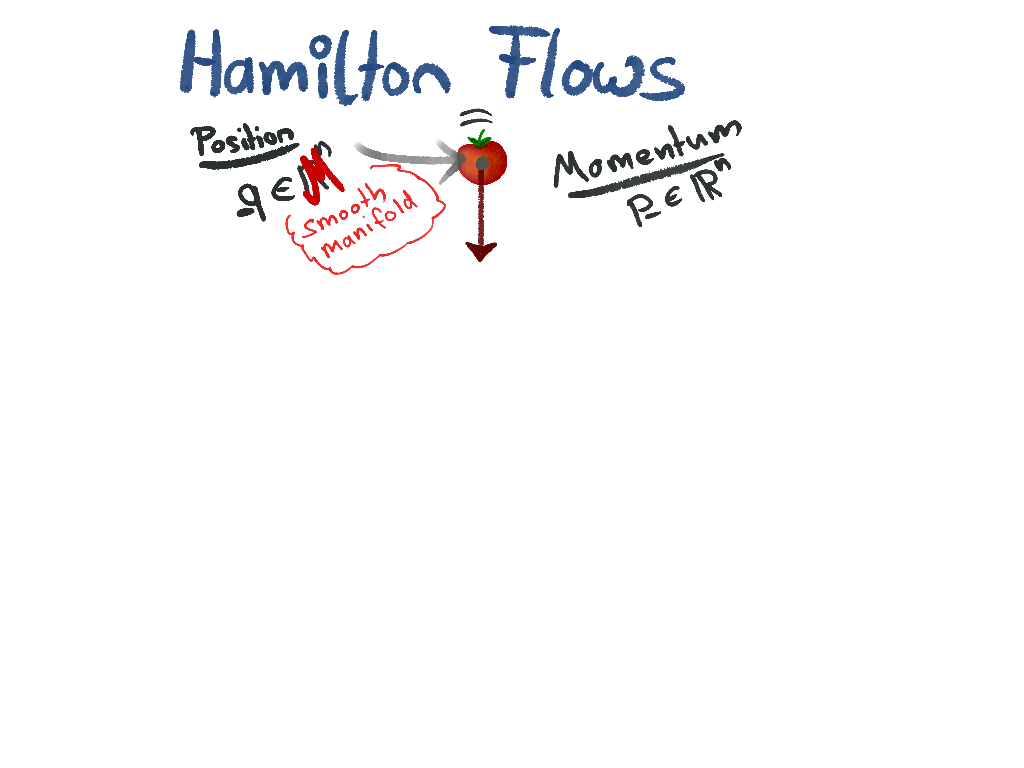 Hamilton Flows
Position
q ∈ M
smooth
manifold
Momentum
p ∈ ℝⁿ